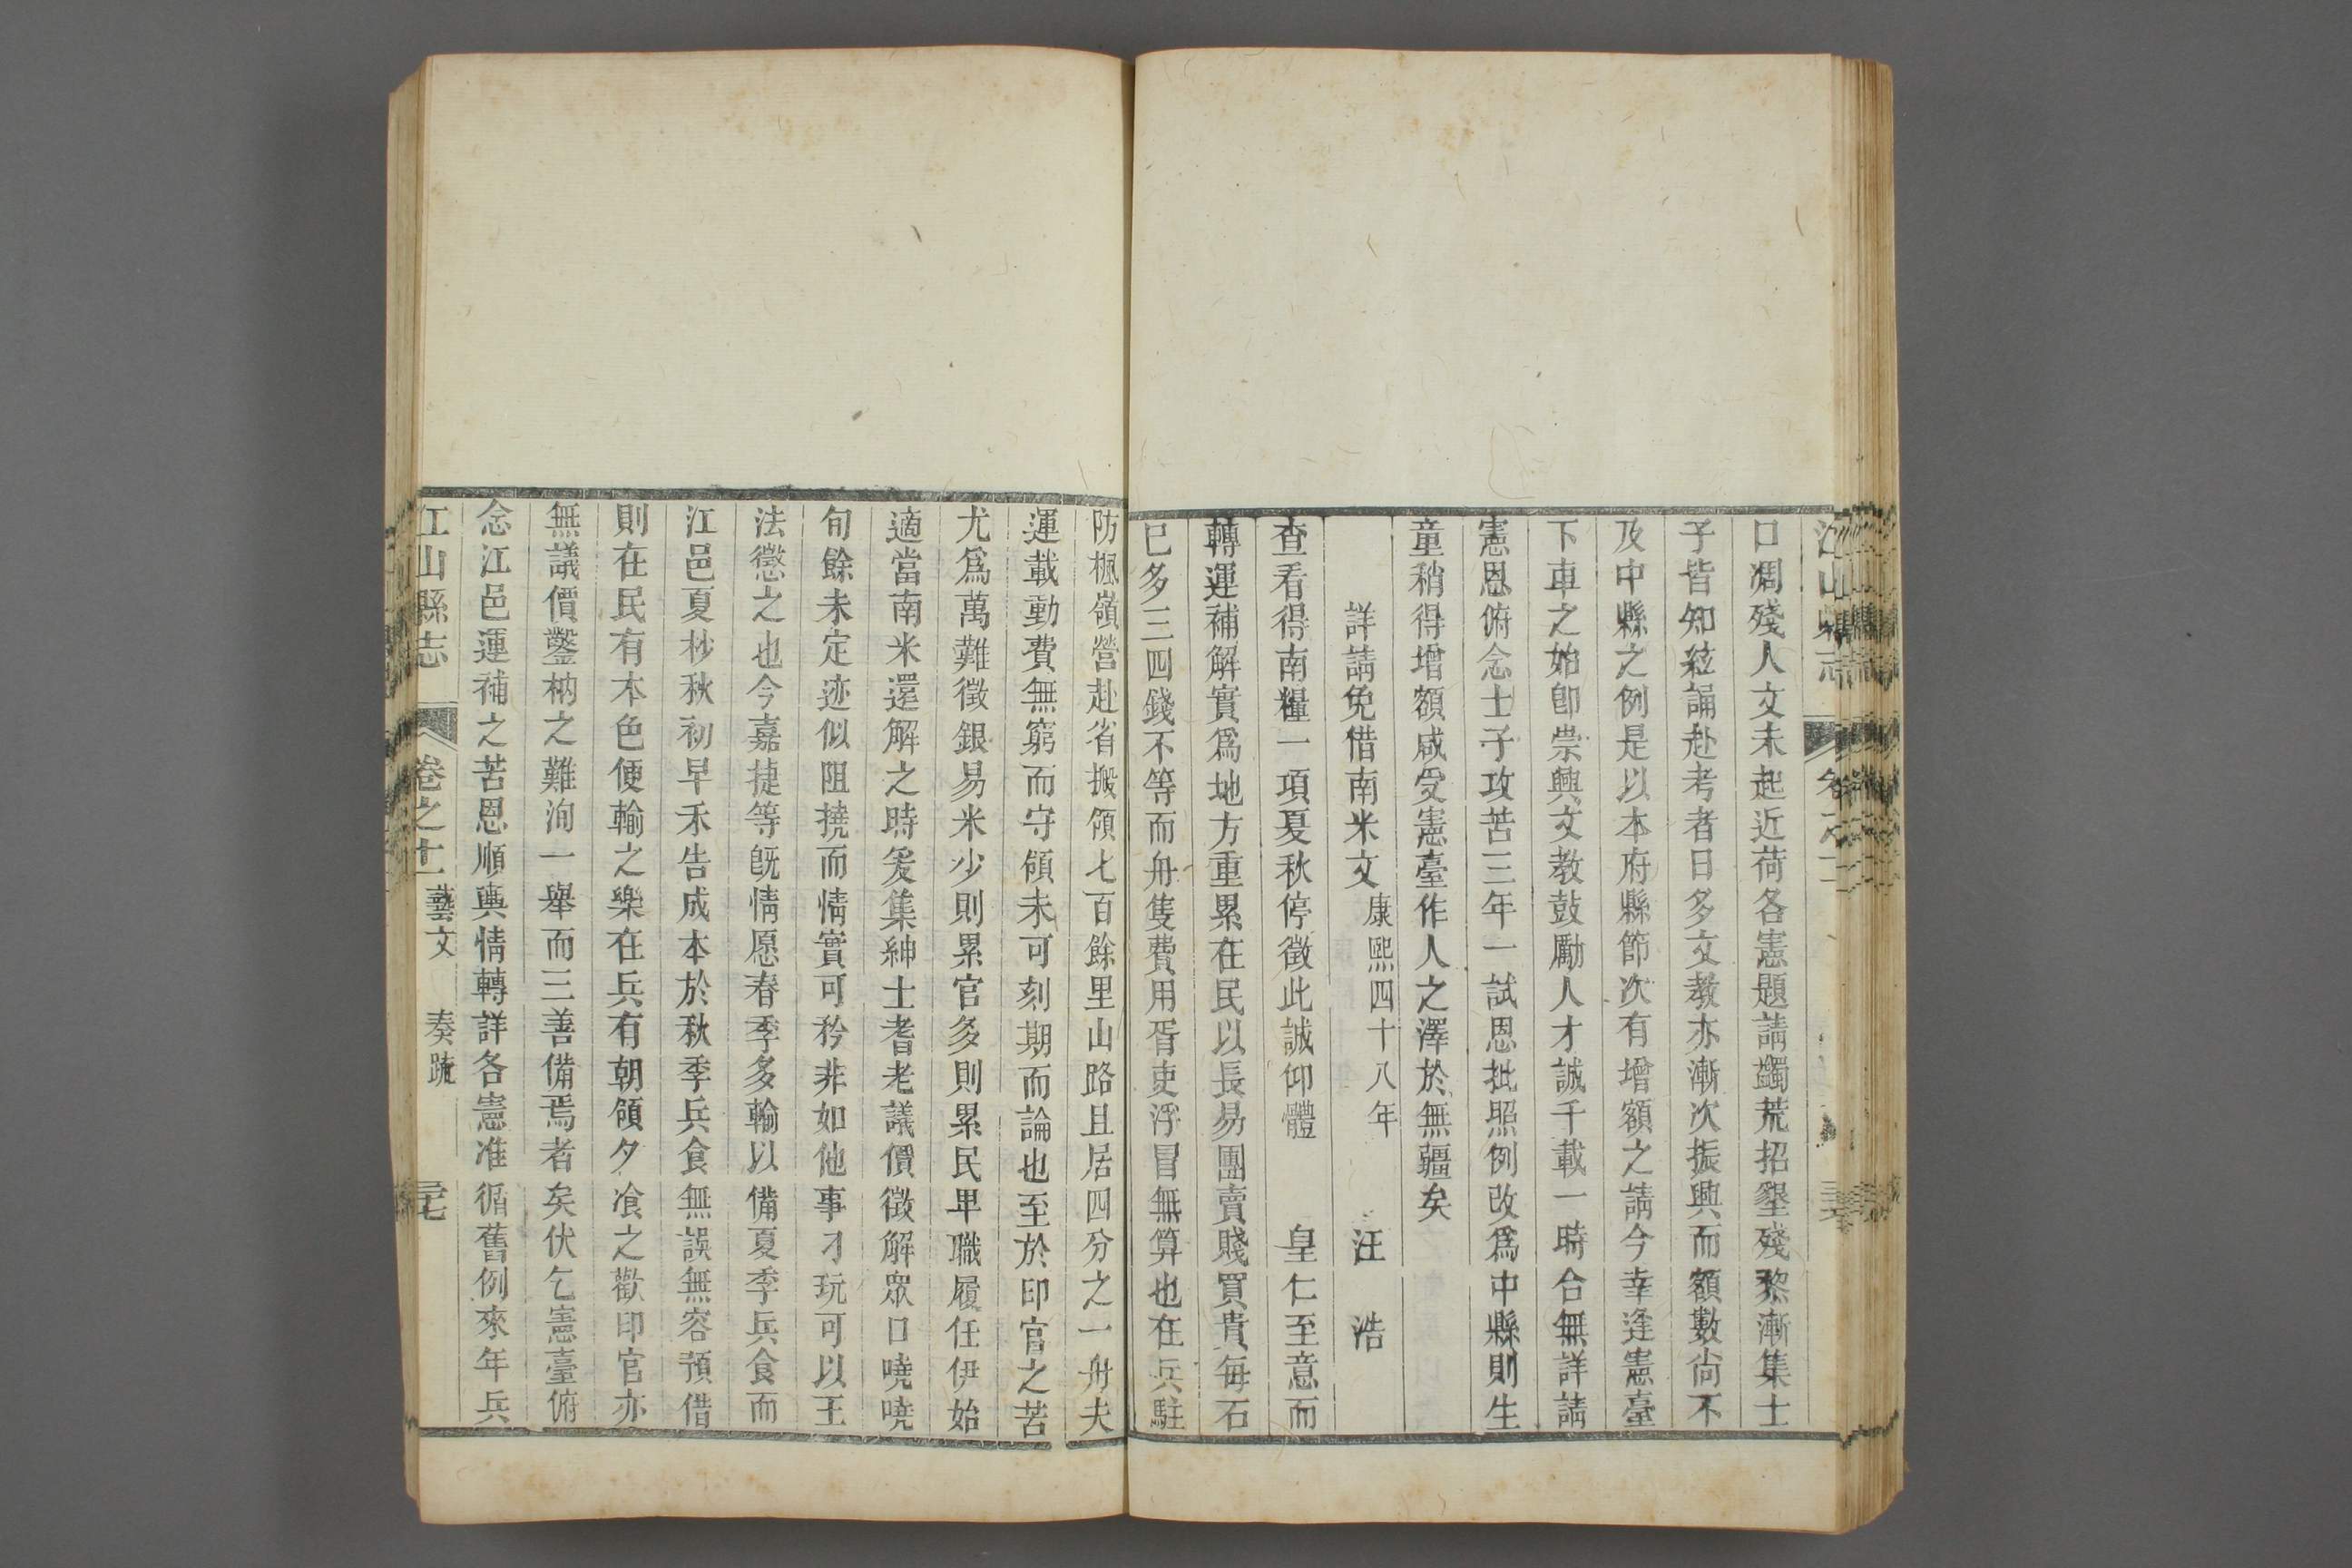 口凋殘人文未起近荷各憲題請蠲荒招墾殘黎漸集士
子皆知絃誦赴考者日多文教亦漸次振興而額數尚不
及中縣之例是以本府縣節次有增額之請今幸逢憲臺
下車之始卽崇興文教鼓勵人才誠千載一時合無詳請
憲恩俯念士子攻苦三年一試恩批照例改爲中縣則生
童稍得增額咸受憲臺作人之澤於無疆矣
詳請免借南米文 康熙四十八年 汪 浩
查看得南糧一項夏秋停徵此誠仰體 皇仁至意而
轉運補解實爲地方重累在民以長易團賣賤買貴每石
已多三四錢不等而舟隻費用胥吏浮冒無算也在兵駐
防楓嶺營赴省搬領七百餘里山路且居四分之一舟夫
運載動費無窮而守領未可刻期而論也至於印官之苦
尤爲萬難徵銀易米少則累官多則累民卑職履任伊始
適當南米還解之時爰集紳士耆老議價徵解眾口嘵嘵
旬餘未定迹似阻撓而情實可矜非如他事刁玩可以王
法懲之也今嘉捷等既情愿春季多輸以備夏季兵食而
江邑夏杪秋初早禾告成本於秋季兵食無誤無容預借
則在民有本色便輸之樂在兵有朝領夕飡之歡印官亦
無議價鑿枘之難洵一舉而三善備焉者矣伏乞憲臺俯
念江邑運補之苦恩順輿情轉詳各憲准循舊例來年兵
江山縣志 卷之十一 藝文 奏疏 三七